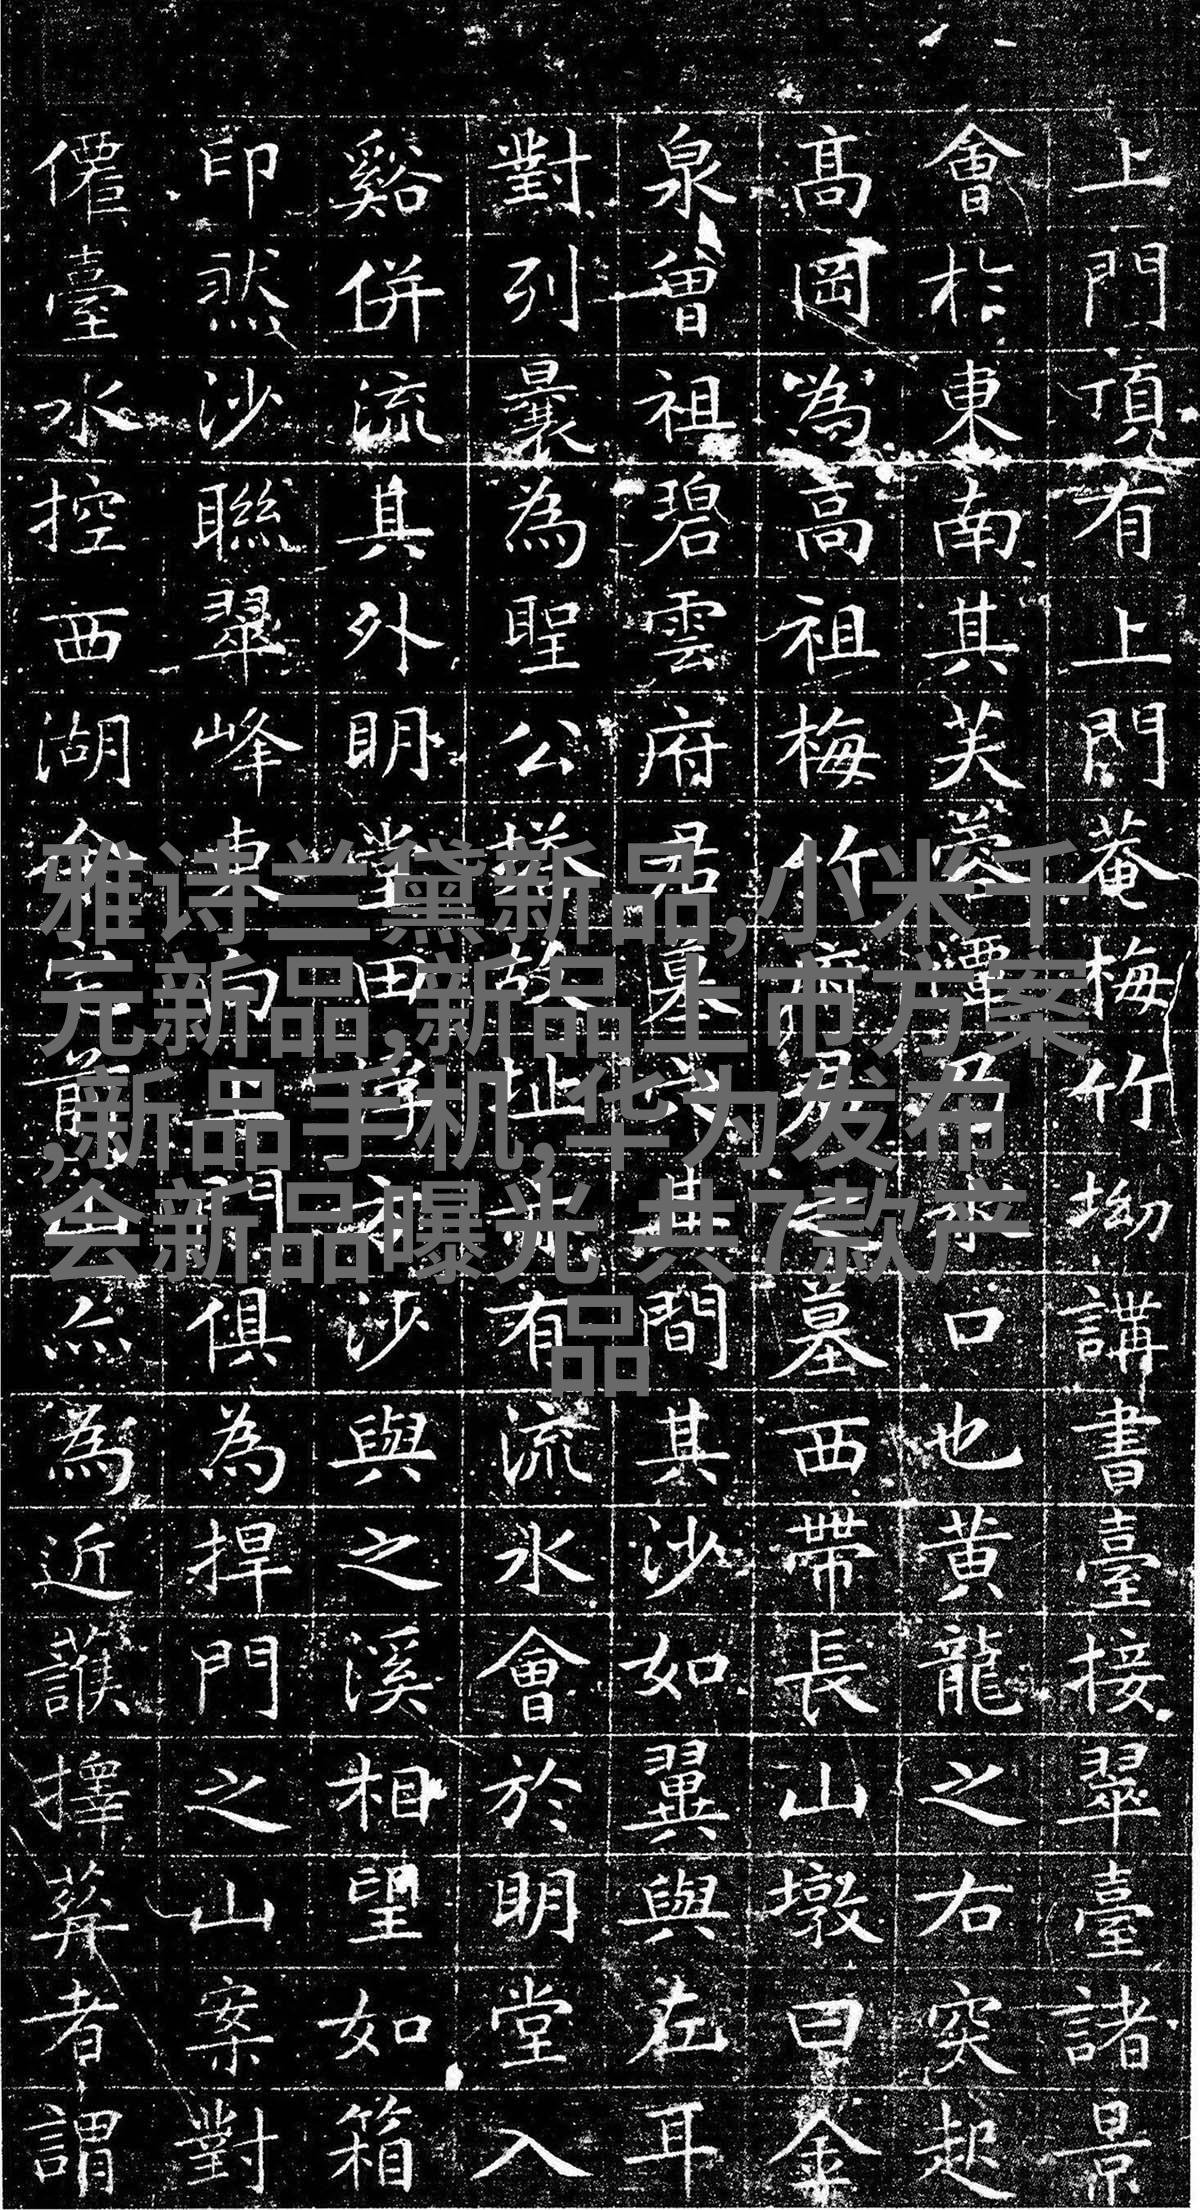 上門頂有上門菴梅竹坳講書臺接翠臺諸景
會扵東南其芙蓉潭乃水口也黄龍之右突起
高岡為高祖梅竹府君之墓西帶長山墩曰金
泉曾祖碧雲府君墓穴其間其沙如翼與左耳
對列曩為聖公故址亦有流水會於明堂入
谿併流其外明堂田右沙與之溪相望如箱
印然沙聯翠峰東向門俱為捍門之山案對
僊臺水控西湖前山為近擇葬者謂
雅诗兰黛新品,小米千
元新品,新品上市方案
,新品手机,华为发布
会新品曝光 共7款产
品